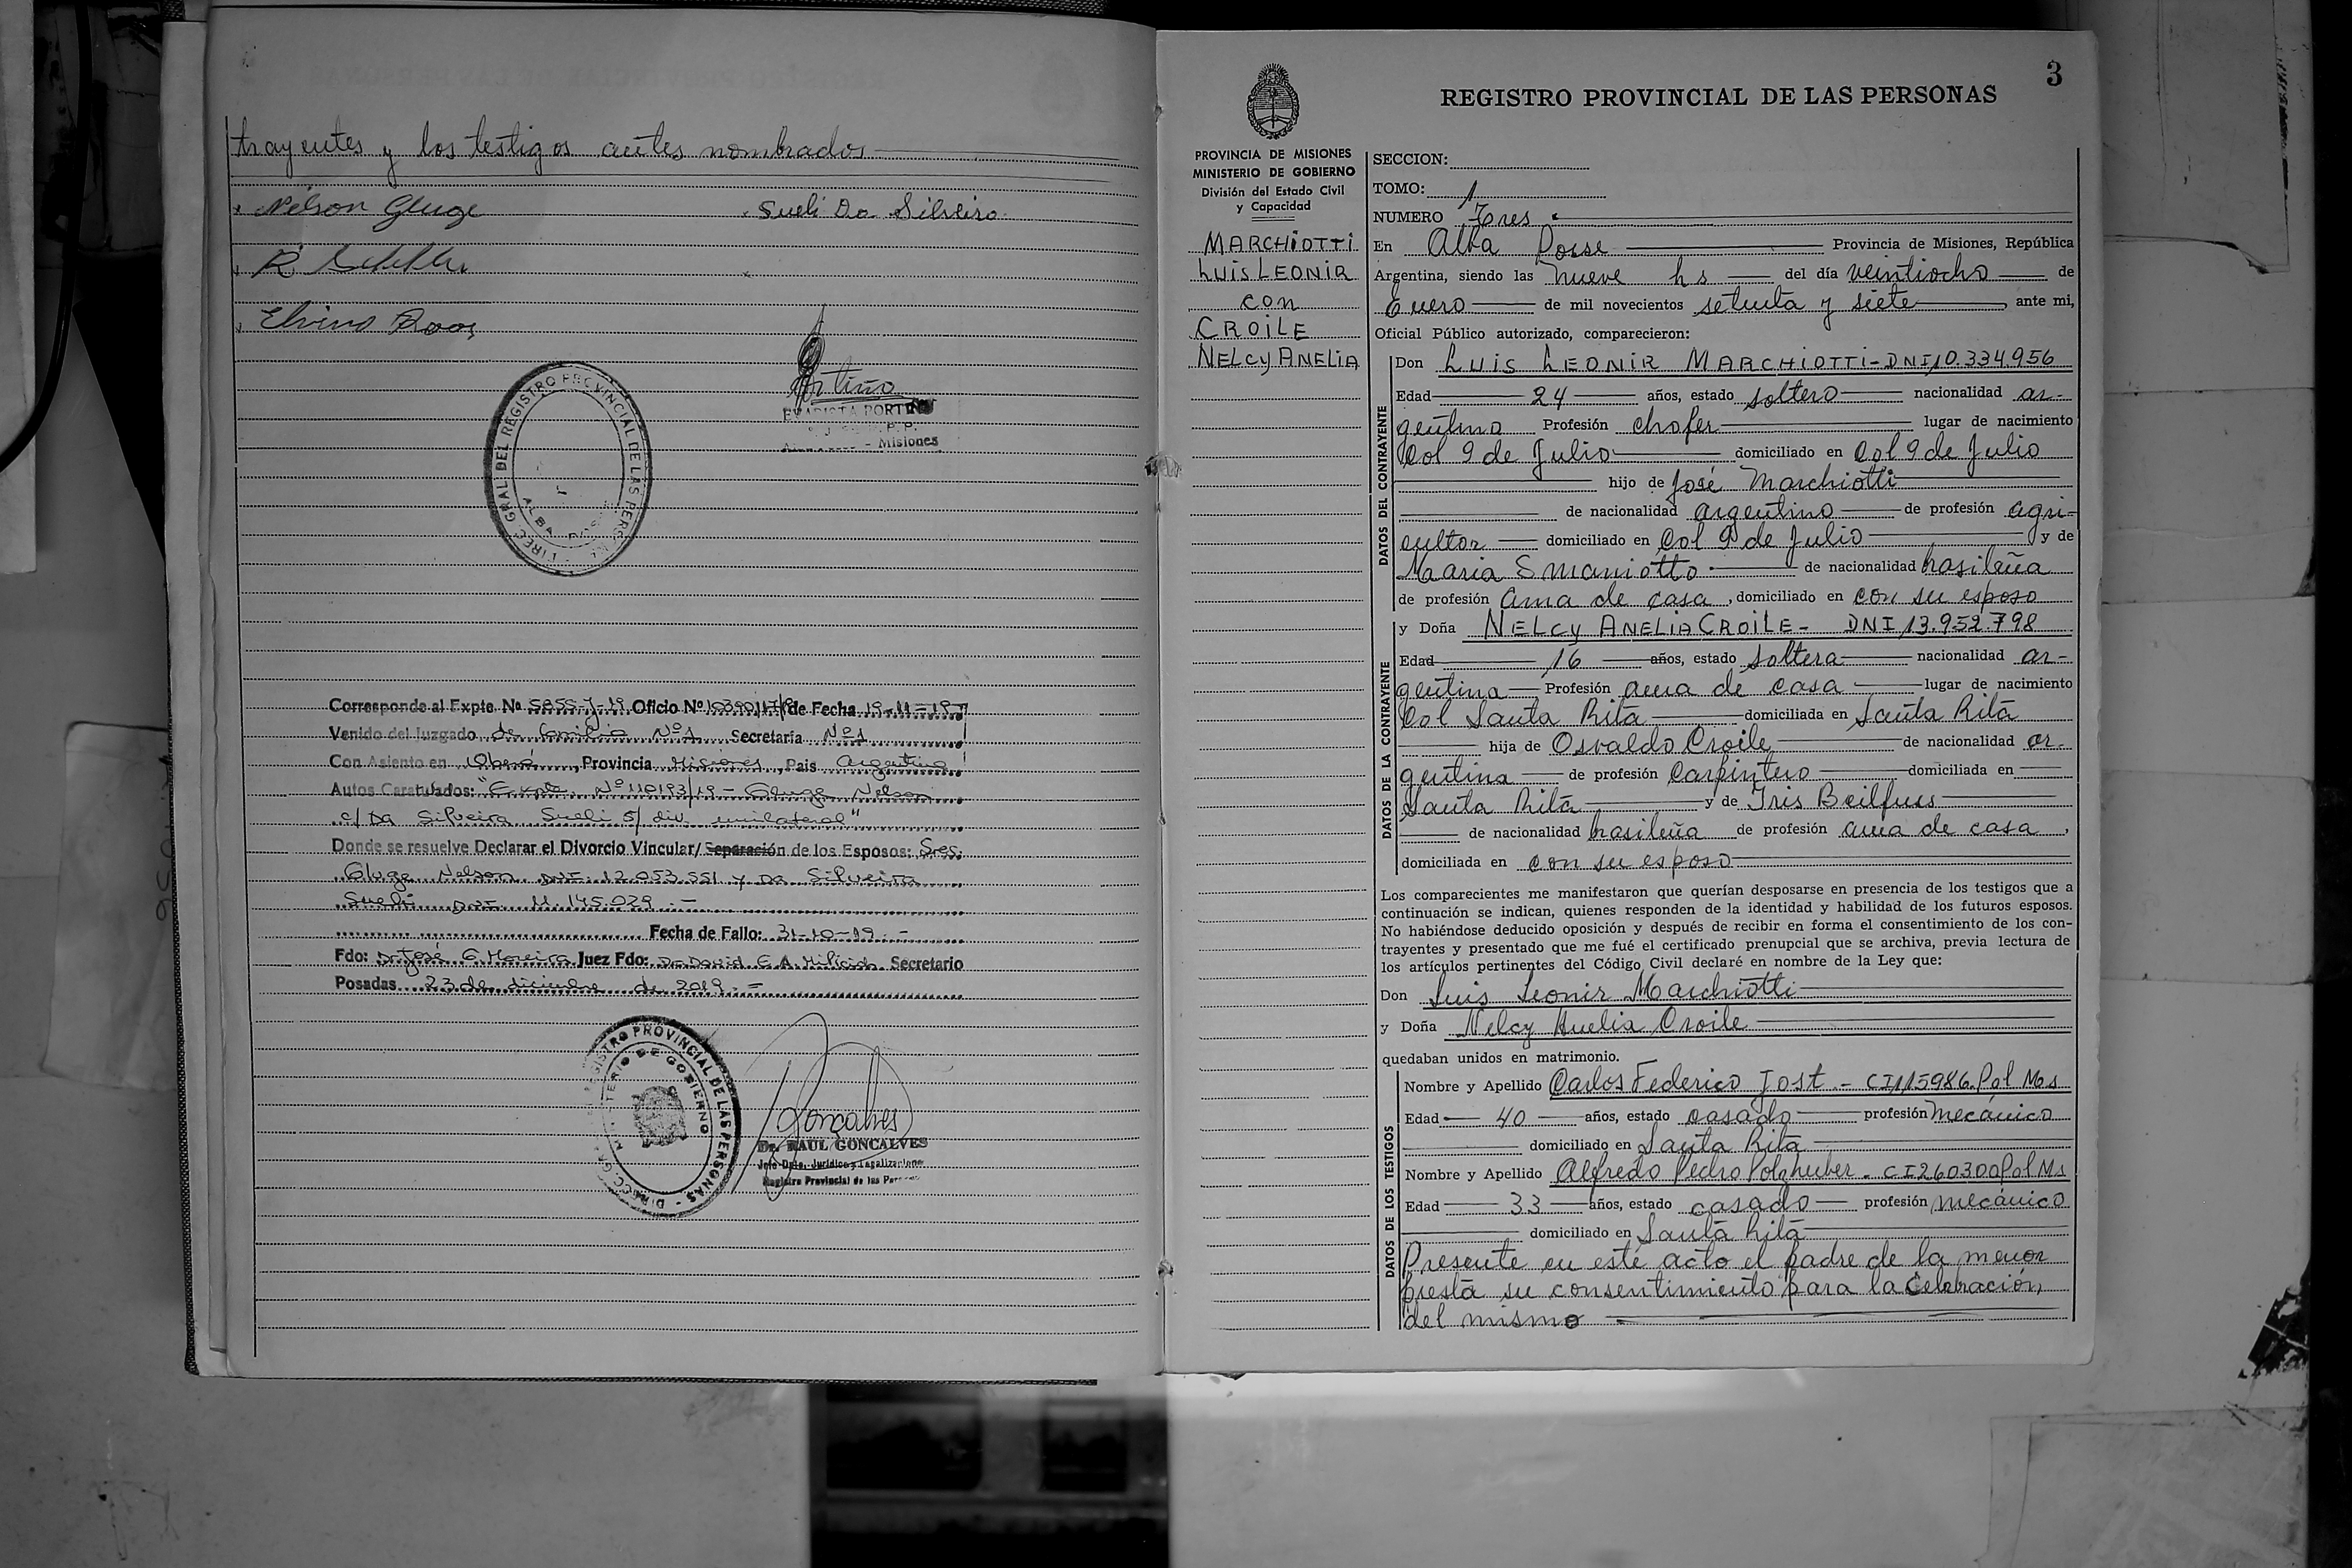 trayentes y los testigos antes nombrados
Nelson Gluge Sueli Da Silveira
Elvino Roos
DIREC. GRAL. DEL REGISTRO PROVINCIAL DE LAS PERS.
ALBA POSSE
Portiño
EVARISTA PORTIÑO
R.P.P.
- Misiones
Corresponde al Expte. Nº 5855-J-19 Oficio Nº de Fecha 19-11-19
Venido del Juzgado de familia Nº1 Secretaría Nº1
Con Asiento en Oberá, Provincia Misiones, Pais Argentina
Autos Caratulados: "Expte. Nº 110193/19 - Gluge Nelson
c/ Da Silveira Sueli s/ div. unilateral"
Donde se resuelve Declarar el Divorcio Vincular/ Separación de los Esposos: Sres.
Gluge Nelson DNI. 12.053.551 y Da Silveira
Sueli DNI. 11.145.029.-
Fecha de Fallo: 31-10-19.-
Fdo: Dr. José G. Moreira Juez Fdo: Dr. David E. A. Milicich Secretario
Posadas 23 de diciembre de 2019.=
DIRECC. GRAL. REGISTRO PROVINCIAL DE LAS PERSONAS
MINISTERIO DE GOBIERNO
Goncalves
Dr. RAUL GONCALVES
Jefe Dpto. Jurídico y Legalizaciones
Registro Provincial de las Personas
3
REGISTRO PROVINCIAL DE LAS PERSONAS
PROVINCIA DE MISIONES
MINISTERIO DE GOBIERNO
División del Estado Civil
y Capacidad
MARCHIOTTI
LUIS LEONIR
con
CROILE
NELCY ANELIA
SECCION:
TOMO: 1
NUMERO Tres
En Alba Posse Provincia de Misiones, República
Argentina, siendo las nueve hs del día veintiocho de
Enero de mil novecientos setenta y siete, ante mi,
Oficial Público autorizado, comparecieron:
DATOS DEL CONTRAYENTE
Don LUIS LEONIR MARCHIOTTI-DNI 10.334.956
Edad 24 años, estado soltero nacionalidad ar-
gentino Profesión chofer lugar de nacimiento
Col 9 de Julio domiciliado en Col 9 de Julio
hijo de José Marchiotti
de nacionalidad argentino de profesión agri-
cultor domiciliado en Col 9 de Julio y de
Maria Smaniotto de nacionalidad brasileña
de profesión ama de casa, domiciliado en con su esposo
DATOS DE LA CONTRAYENTE
y Doña NELCY ANELIA CROILE- DNI 13.952.798
Edad 16 años, estado soltera nacionalidad ar-
gentina Profesión ama de casa lugar de nacimiento
Col Santa Rita domiciliada en Santa Rita
hija de Osvaldo Croile de nacionalidad ar-
gentina de profesión Carpintero domiciliada en
Santa Rita y de Iris Beilfuss
de nacionalidad brasileña de profesión ama de casa,
domiciliada en con su esposo
Los comparecientes me manifestaron que querían desposarse en presencia de los testigos que a
continuación se indican, quienes responden de la identidad y habilidad de los futuros esposos.
No habiéndose deducido oposición y después de recibir en forma el consentimiento de los con-
trayentes y presentado que me fué el certificado prenupcial que se archiva, previa lectura de
los artículos pertinentes del Código Civil declaré en nombre de la Ley que:
Don Luis Leonir Marchiotti
y Doña Nelcy Anelia Croile
quedaban unidos en matrimonio.
DATOS DE LOS TESTIGOS
Nombre y Apellido Carlos Federico Jost - CI 115986 Pol Ms
Edad 40 años, estado casado profesión mecánico
domiciliado en Santa Rita
Nombre y Apellido Alfredo Pedro Polzhuber - CI 260300 Pol Ms
Edad 33 años, estado casado profesión mecánico
domiciliado en Santa Rita
Presente en este acto el padre de la menor
presta su consentimiento para la Celebración
del mismo